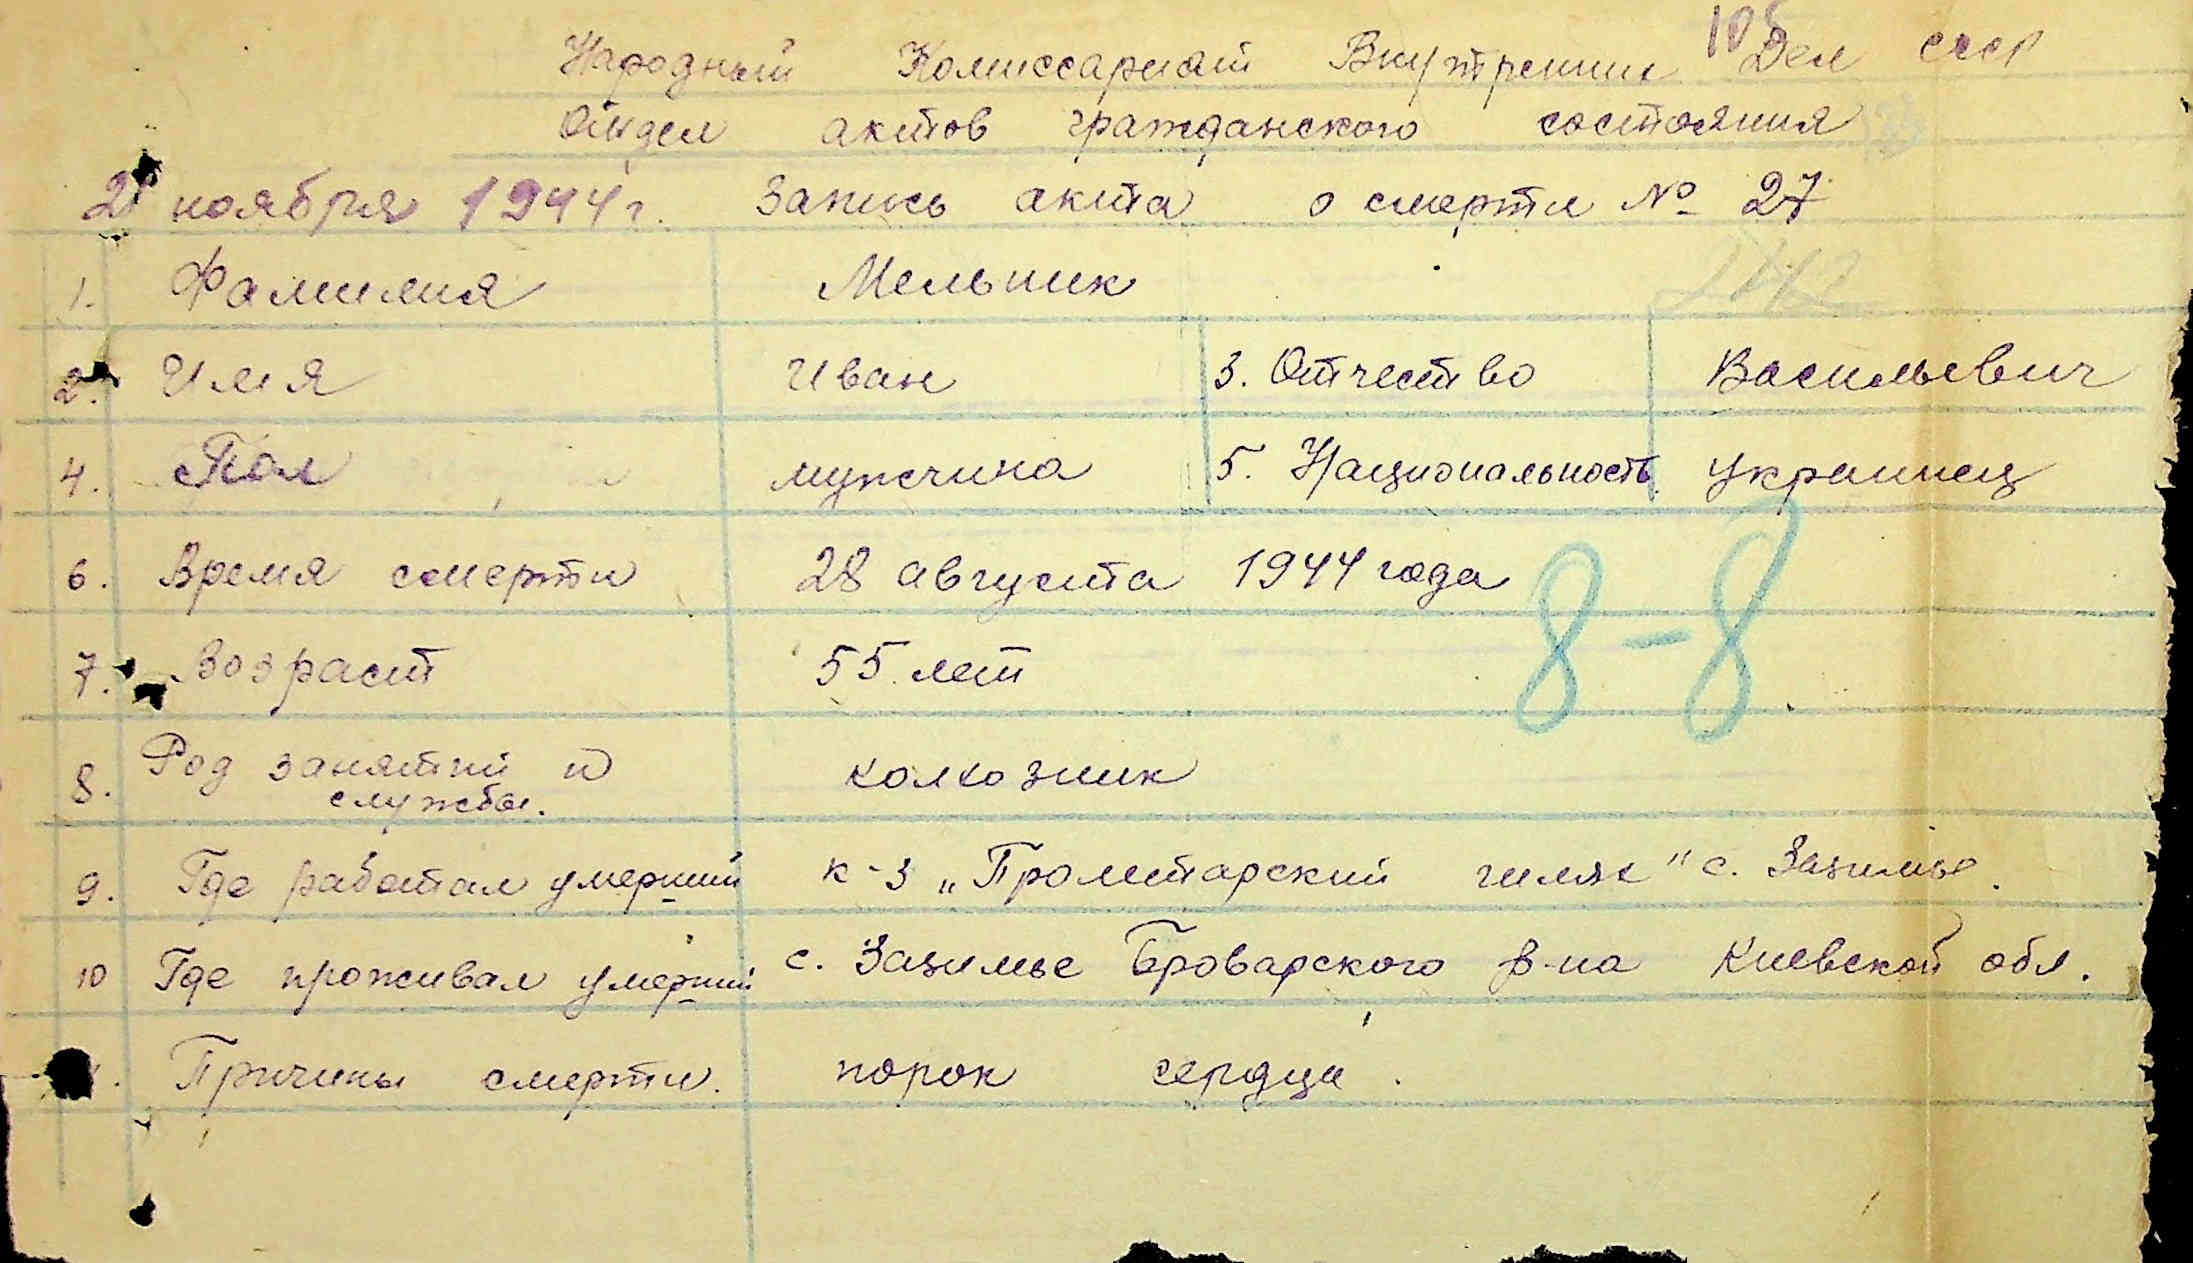 Народный Комиссариат Внутренних Дел СССР
Отдел актов гражданского состояния
ноября 1944 г. Запись акта о смерти № 27
1. Фамилия Мельник
2. Имя Иван 3. Отчество Васильевич
4. Пол мужчина 5. Национальность украинец
6. Время смерти 28 августа 1944 года
7. Возраст 55 лет
8. Род занятий и
службы. колхозник
9. Где работал умерший к-з „Пролетарский шлях" с. Зазимье.
10 Где проживал умерший с. Зазимье Броварского р-на Киевской обл.
Причины смерти. порок сердца.
8-8